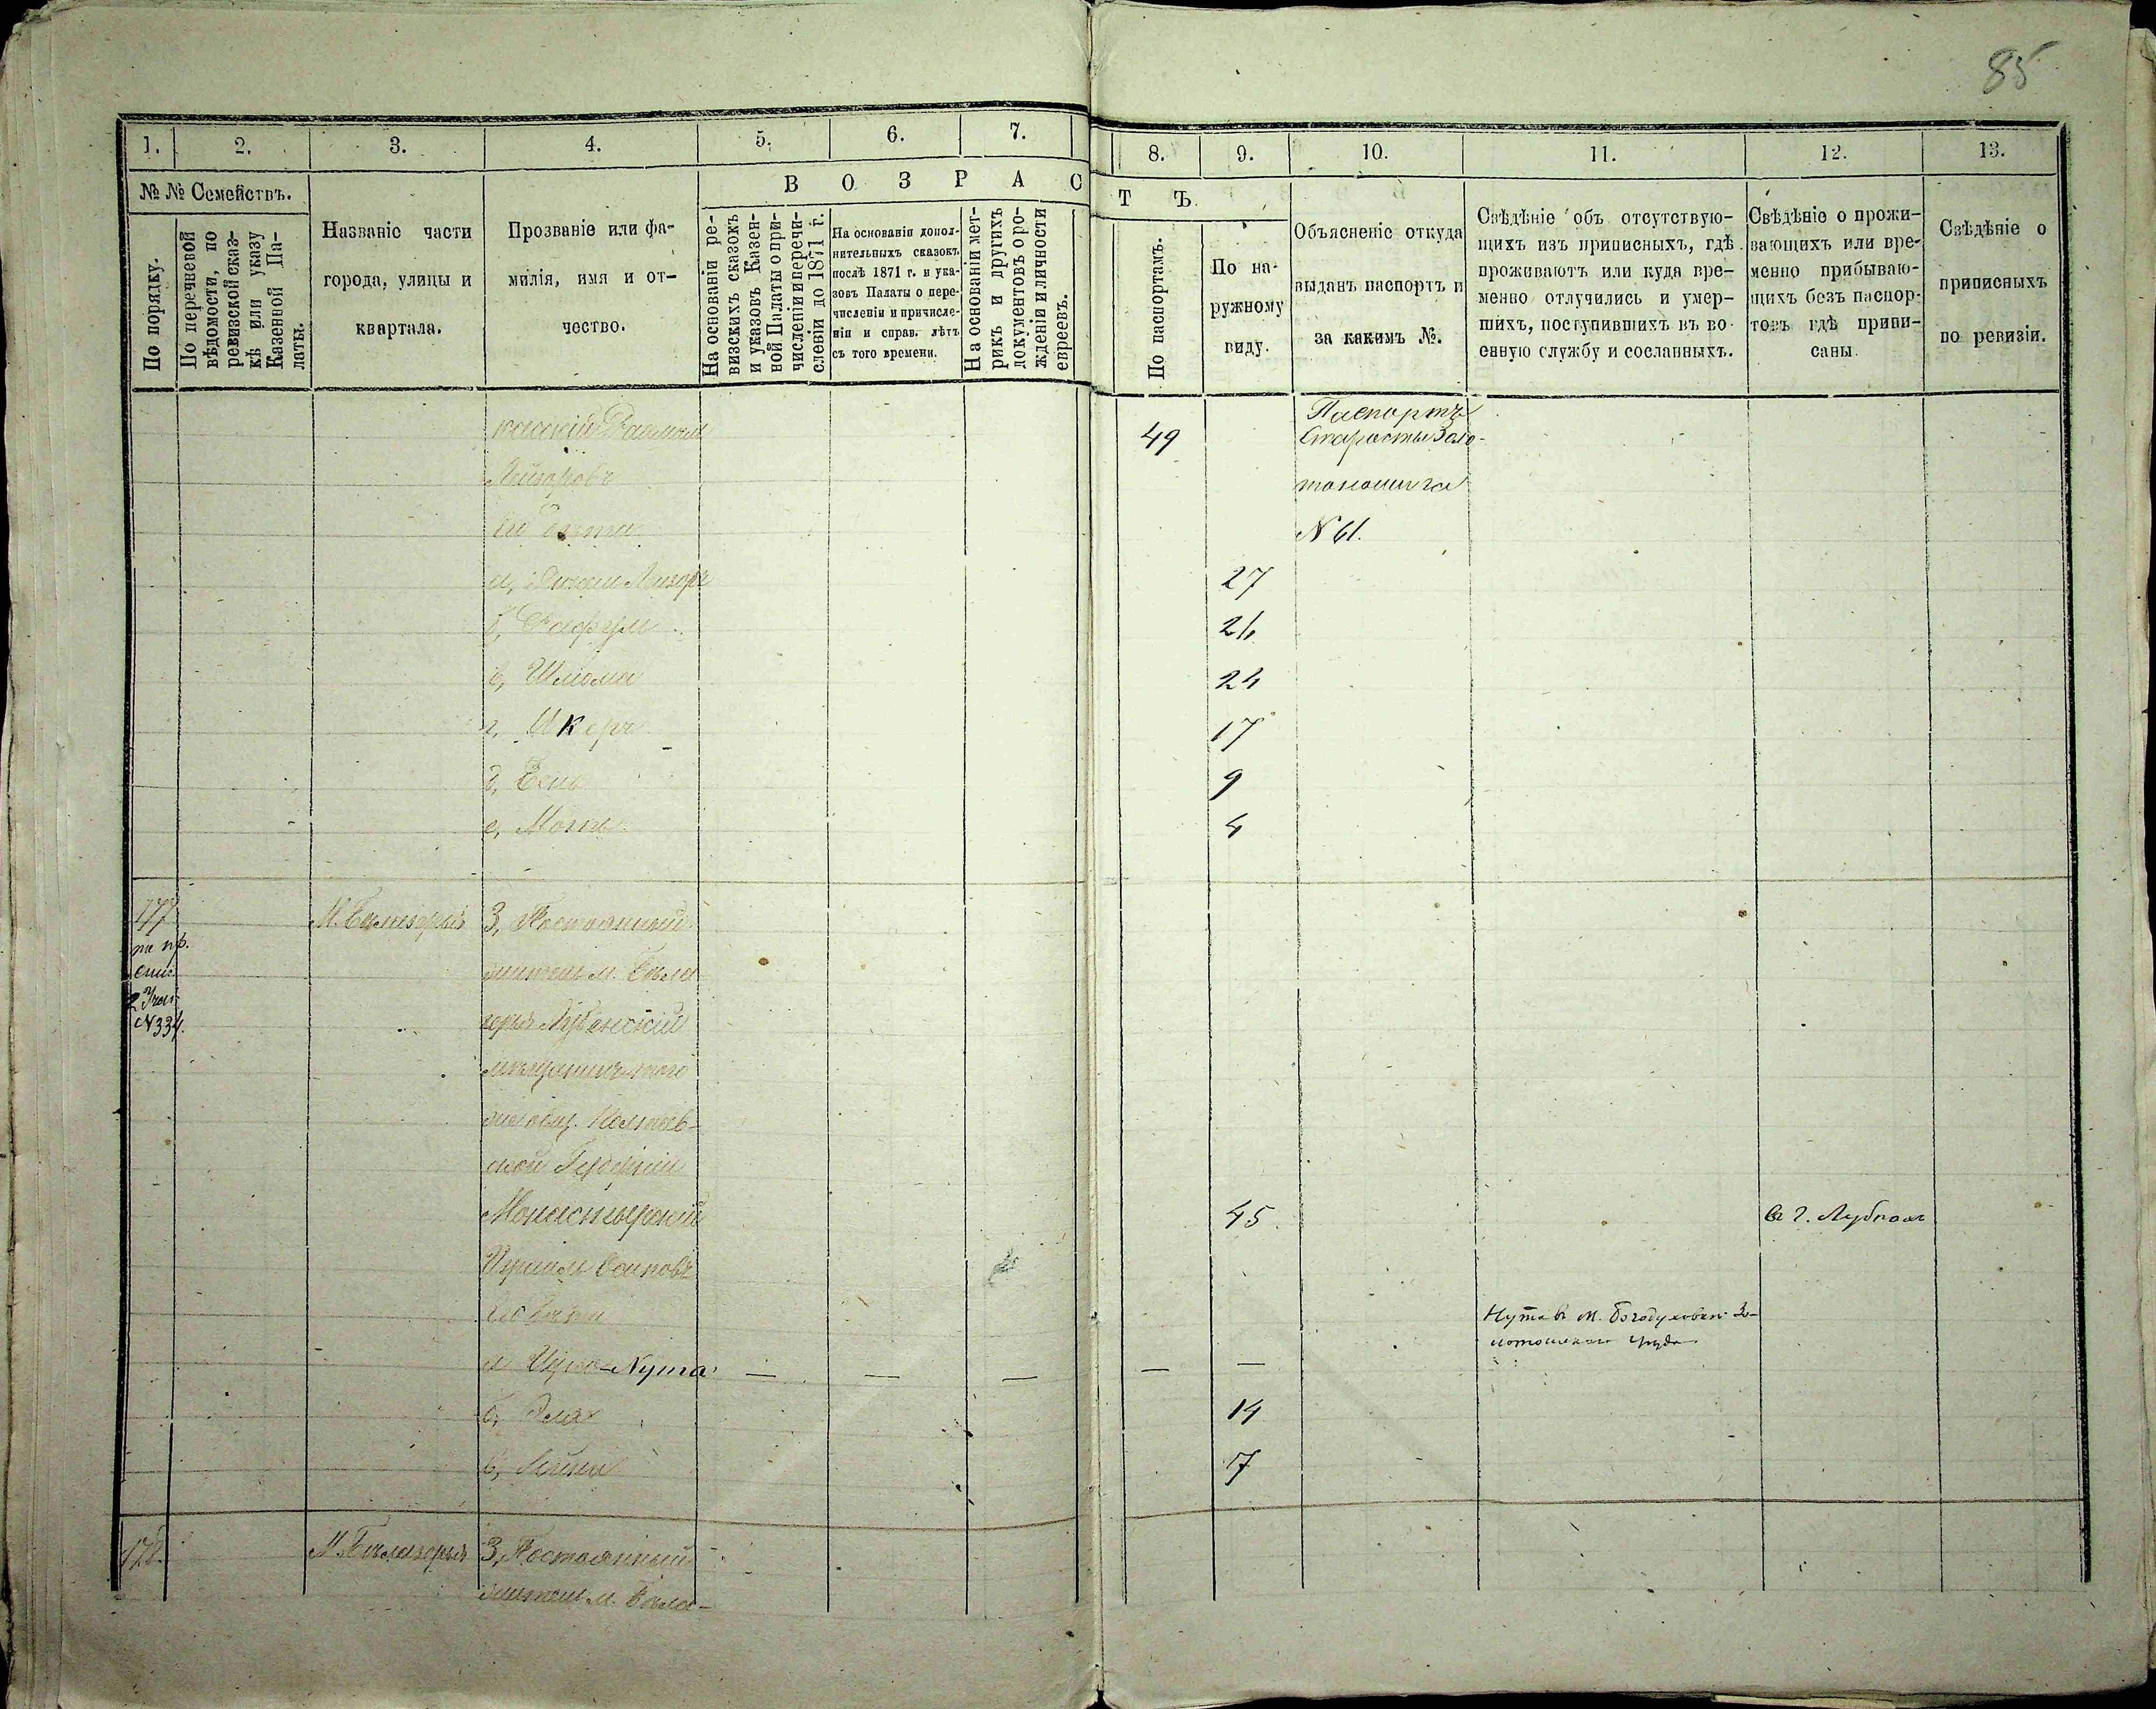 85
1.
2.
3.
4.
5.
6.
7.
8.
9.
10.
11.
12.
13.
№ № Семействъ.
По порядку.
По перечневой
вѣдомости, по
ревизской сказ-
кѣ или указу
Казенной Па-
латы.
Названіе части
города, улицы и
квартала.
Прозваніе или фа-
милія, имя и от-
чество.
ВОЗРАС
ТЪ
На основаніи ре-
визскихъ сказокъ
и указовъ Казен-
ной Палаты о при-
численіи и перечи-
сленіи до 1871 г.
На основаніи допол-
нительныхъ сказокъ
послѣ 1871 г. и ука-
зовъ Палаты о пере-
численіи и причисле-
ніи и справ. лѣтъ
съ того времени.
На основаніи мет-
рикъ и другихъ
документовъ о ро-
жденіи и личности
евреевъ.
По паспортамъ.
По на-
ружному
виду.
Объясненіе откуда
выданъ паспортъ и
за какимъ №.
Свѣдѣніе объ отсутствую-
щихъ изъ приписныхъ, гдѣ
проживаютъ или куда вре-
менно отлучились и умер-
шихъ, поступившихъ въ во-
енную службу и сосланныхъ.
Свѣдѣніе о прожи-
вающихъ или вре-
менно прибываю-
щихъ безъ паспор-
товъ гдѣ припи-
саны.
Свѣдѣніе о
приписныхъ
по ревизіи.
49
Паспортъ
Старосты Золо-
тоношига
N 61.
Лейзоровъ
Его дѣти
а, Лейзоръ
27
б, Рафулъ
26
в, Шлома
24
г, Икеръ
17
д, Бень
9
е,
4
177
2 Учас.
N 334.
М. Бѣлозерье
3, Постоянный
житель м. Бѣло
зерья Лубенскій
мѣщанинъ того
же общ. Полтав-
ской Губерніи
Монастырскій
45
въ г. Лубнахъ
Осиповъ
Его дѣти
Нута въ м. Богодуховкѣ Зо-
лотоношскаго уѣзда
а - Нута — — — — —
б, Элья
14
в,
7
178.
М. Бѣлозерья
3, Постоянный
житель м. Бѣло-